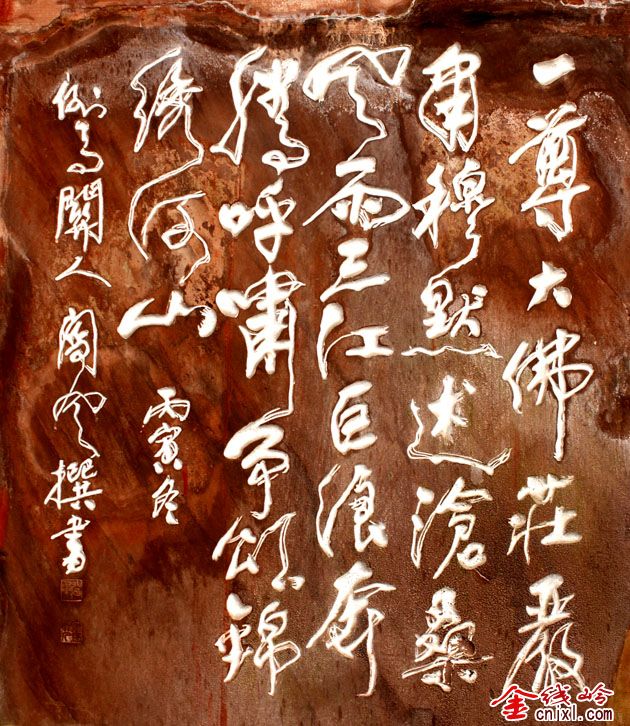 一尊大佛莊嚴
肅穆默述滄桑
风雨三江巨浪奔
騰呼嘯争頌錦
綉河山
丙寅冬
關人閣风撰書
金线岭
cnjxl.com